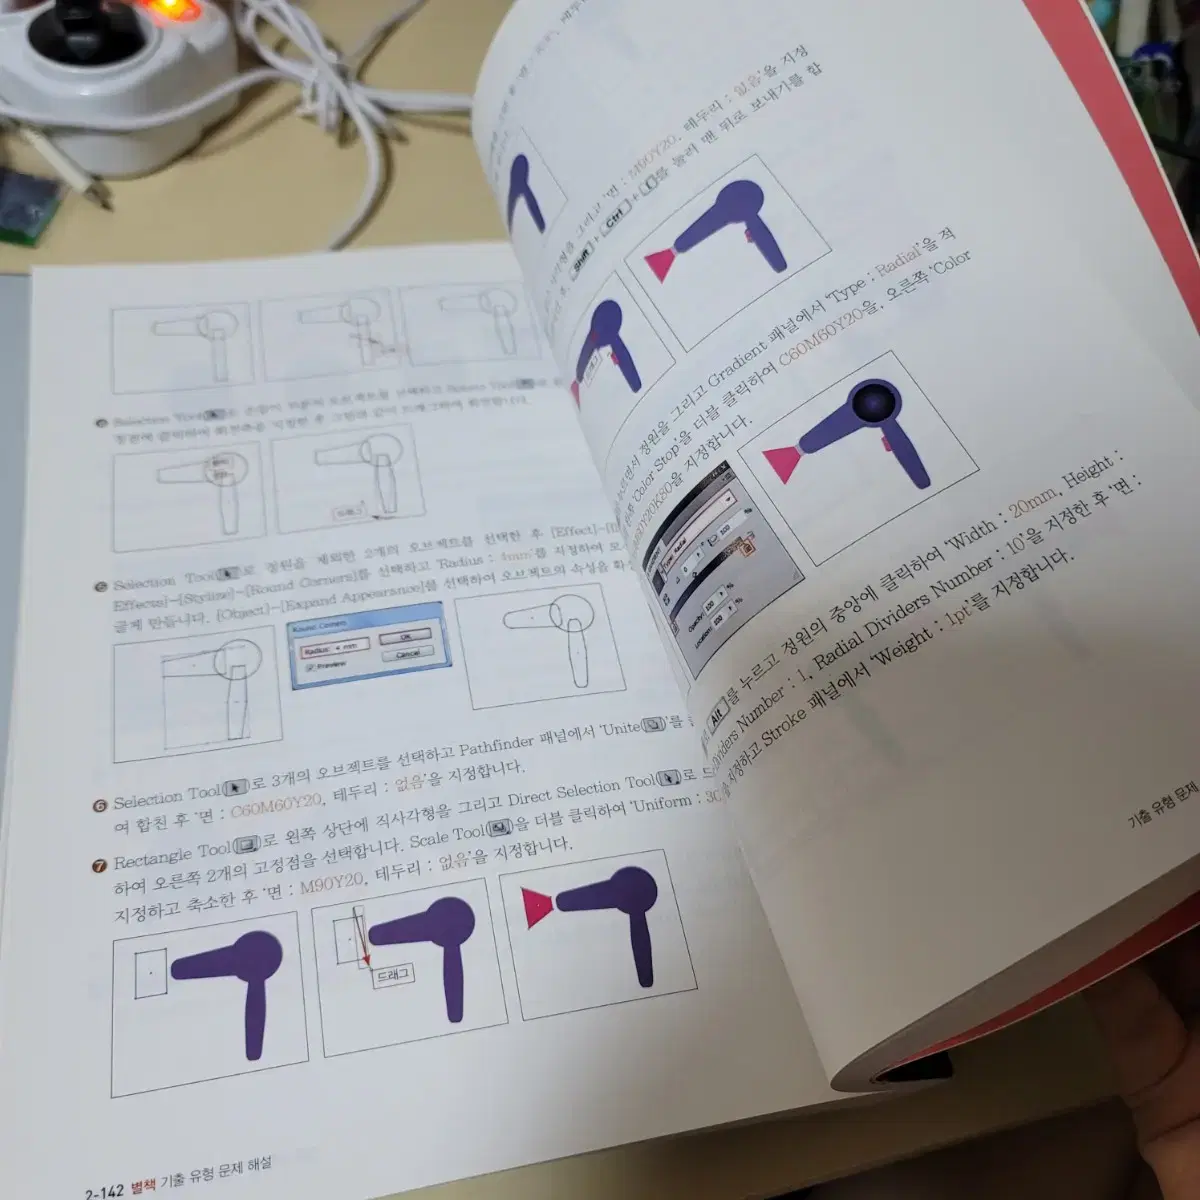 정원에 클릭하여 회전축을 지정한 후 그림과 같이 드래그하여 회전합니다.
드래그
Selection Tool로 정원을 제외한 2개의 오브젝트를 선택한 후 [Effect]-
Effects]-[Stylize]-[Round Corners]를 선택하고 'Radius : 4mm'를 지정하여
글게 만듭니다. [Object]-[Expand Appearance]를 선택하여 오브젝트의 속성을
Round Corners
Radius: 4 mm
Preview
OK
Cancel
❻ Selection Tool()로 3개의 오브젝트를 선택하고 Pathfinder 패널에서 'Unite()'를
여 합친 후 '면 : C60M60Y20, 테두리 : 없음'을 지정합니다.
❼ Rectangle Tool()로 왼쪽 상단에 직사각형을 그리고 Direct Selection Tool()로
하여 오른쪽 2개의 고정점을 선택합니다. Scale Tool()을 더블 클릭하여 'Uniform :
지정하고 축소한 후 '면 : M90Y20, 테두리 : 없음'을 지정합니다.
드래그
2-142 별책 기출 유형 문제 해설
그리고 '면 : M90Y20, 테두리 : 없음'을 지정
Shift + Ctrl + [를 눌러 맨 뒤로 보내기를 합
누르면서 정원을 그리고 Gradient 패널에서 'Type : Radial'을 적
'Color Stop'을 더블 클릭하여 C60M60Y20을, 오른쪽 'Color
Y20K80을 지정합니다.
Type: Radial
Opacity: 100 %
Location: 100 %
Alt를 누르고 정원의 중앙에 클릭하여 'Width : 20mm, Height :
Dividers Number : 1, Radial Dividers Number : 10'을 지정한 후 '면 :
을 지정하고 Stroke 패널에서 'Weight : 1pt'를 지정합니다.
기출 유형 문제